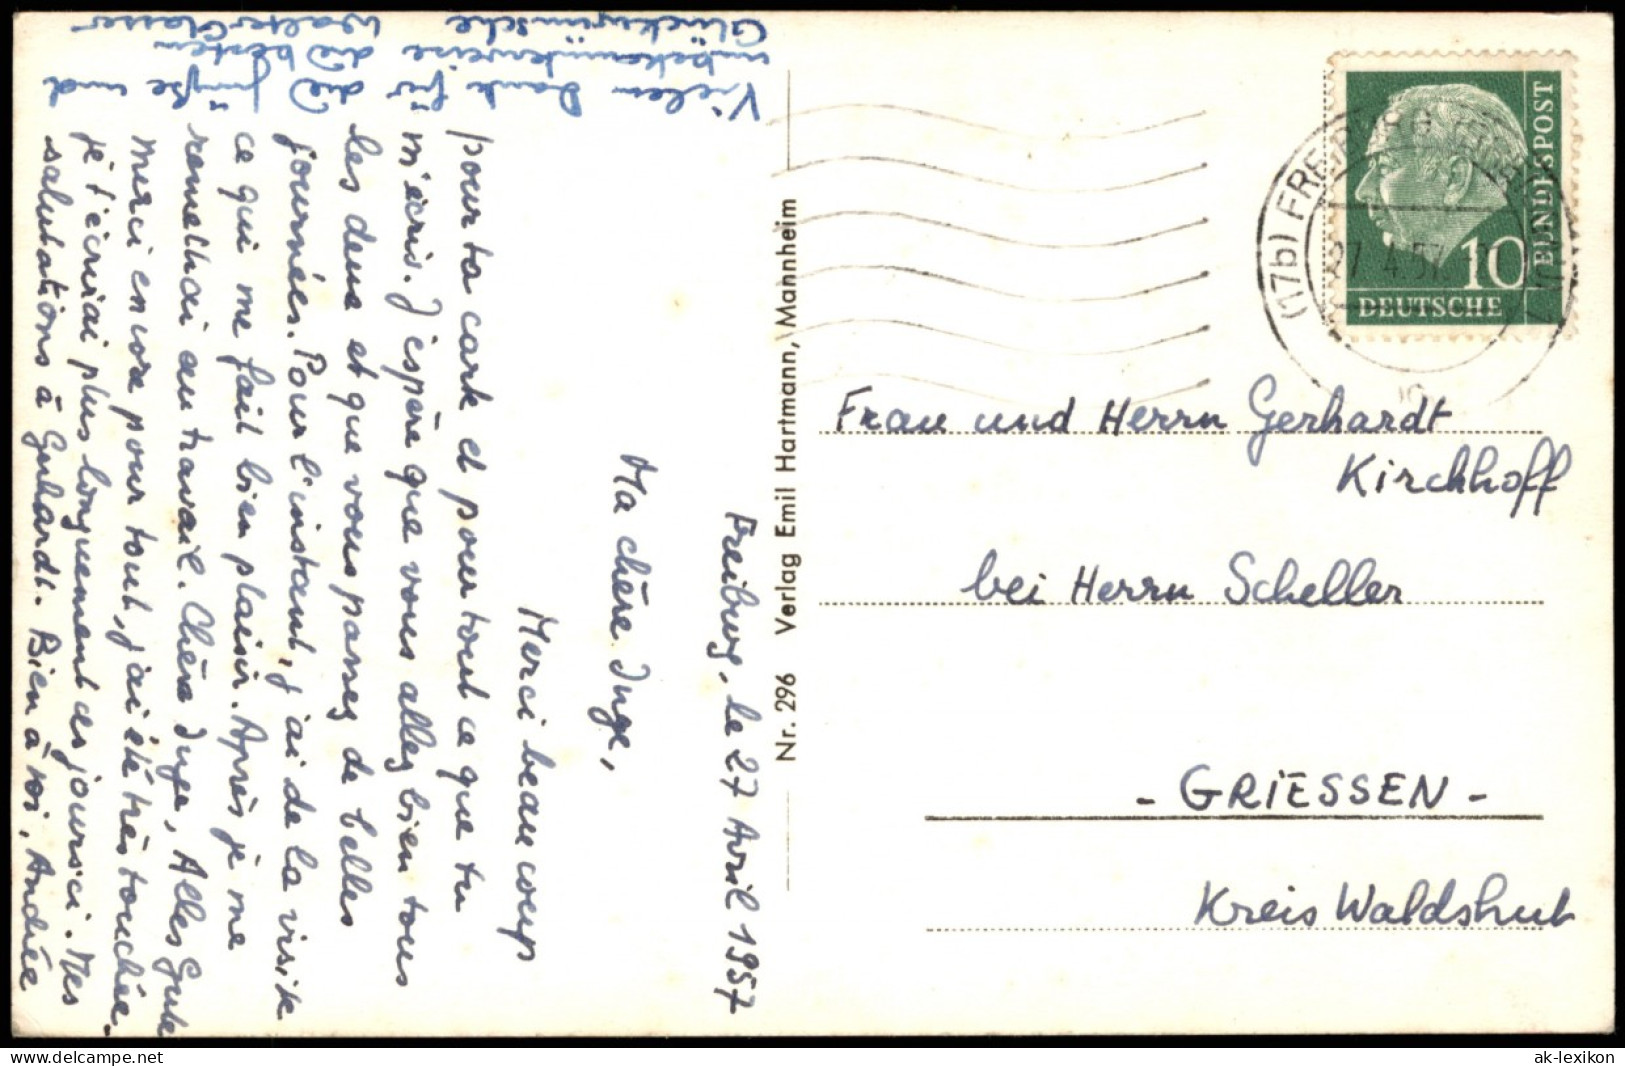 Freiburg, le 27 Avril 1957
Ma chère Inge,
Merci beaucoup
pour ta carte et pour tout ce que tu
m'écris. J'espère que vous allez bien tous
les deux et que vous passez de belles
journées. Pour l'instant, j'ai de la visite
ce qui me fait bien plaisir. Après je me
remettrai au travail. Chère Inge, Alles Gute
merci encore pour tout, j'ai été très touchée.
je t'écrirai plus longuement ces jours ci. Mes
salutations à Gerhardt. Bien à toi, Andrée
Vielen Dank für die Grüße und
unbekannterweise die besten
Glückwünsche Walter Glasser
Nr. 296 Verlag Emil Hartmann, Mannheim
(17b) FREIBURG
27.4.57
10
DEUTSCHE
BUNDESPOST
Frau und Herrn Gerhardt
Kirchhoff
bei Herrn Scheller
- GRIESSEN -
Kreis Waldshut
© Copyright by www.ak-lexikon.de
ak-lexikon